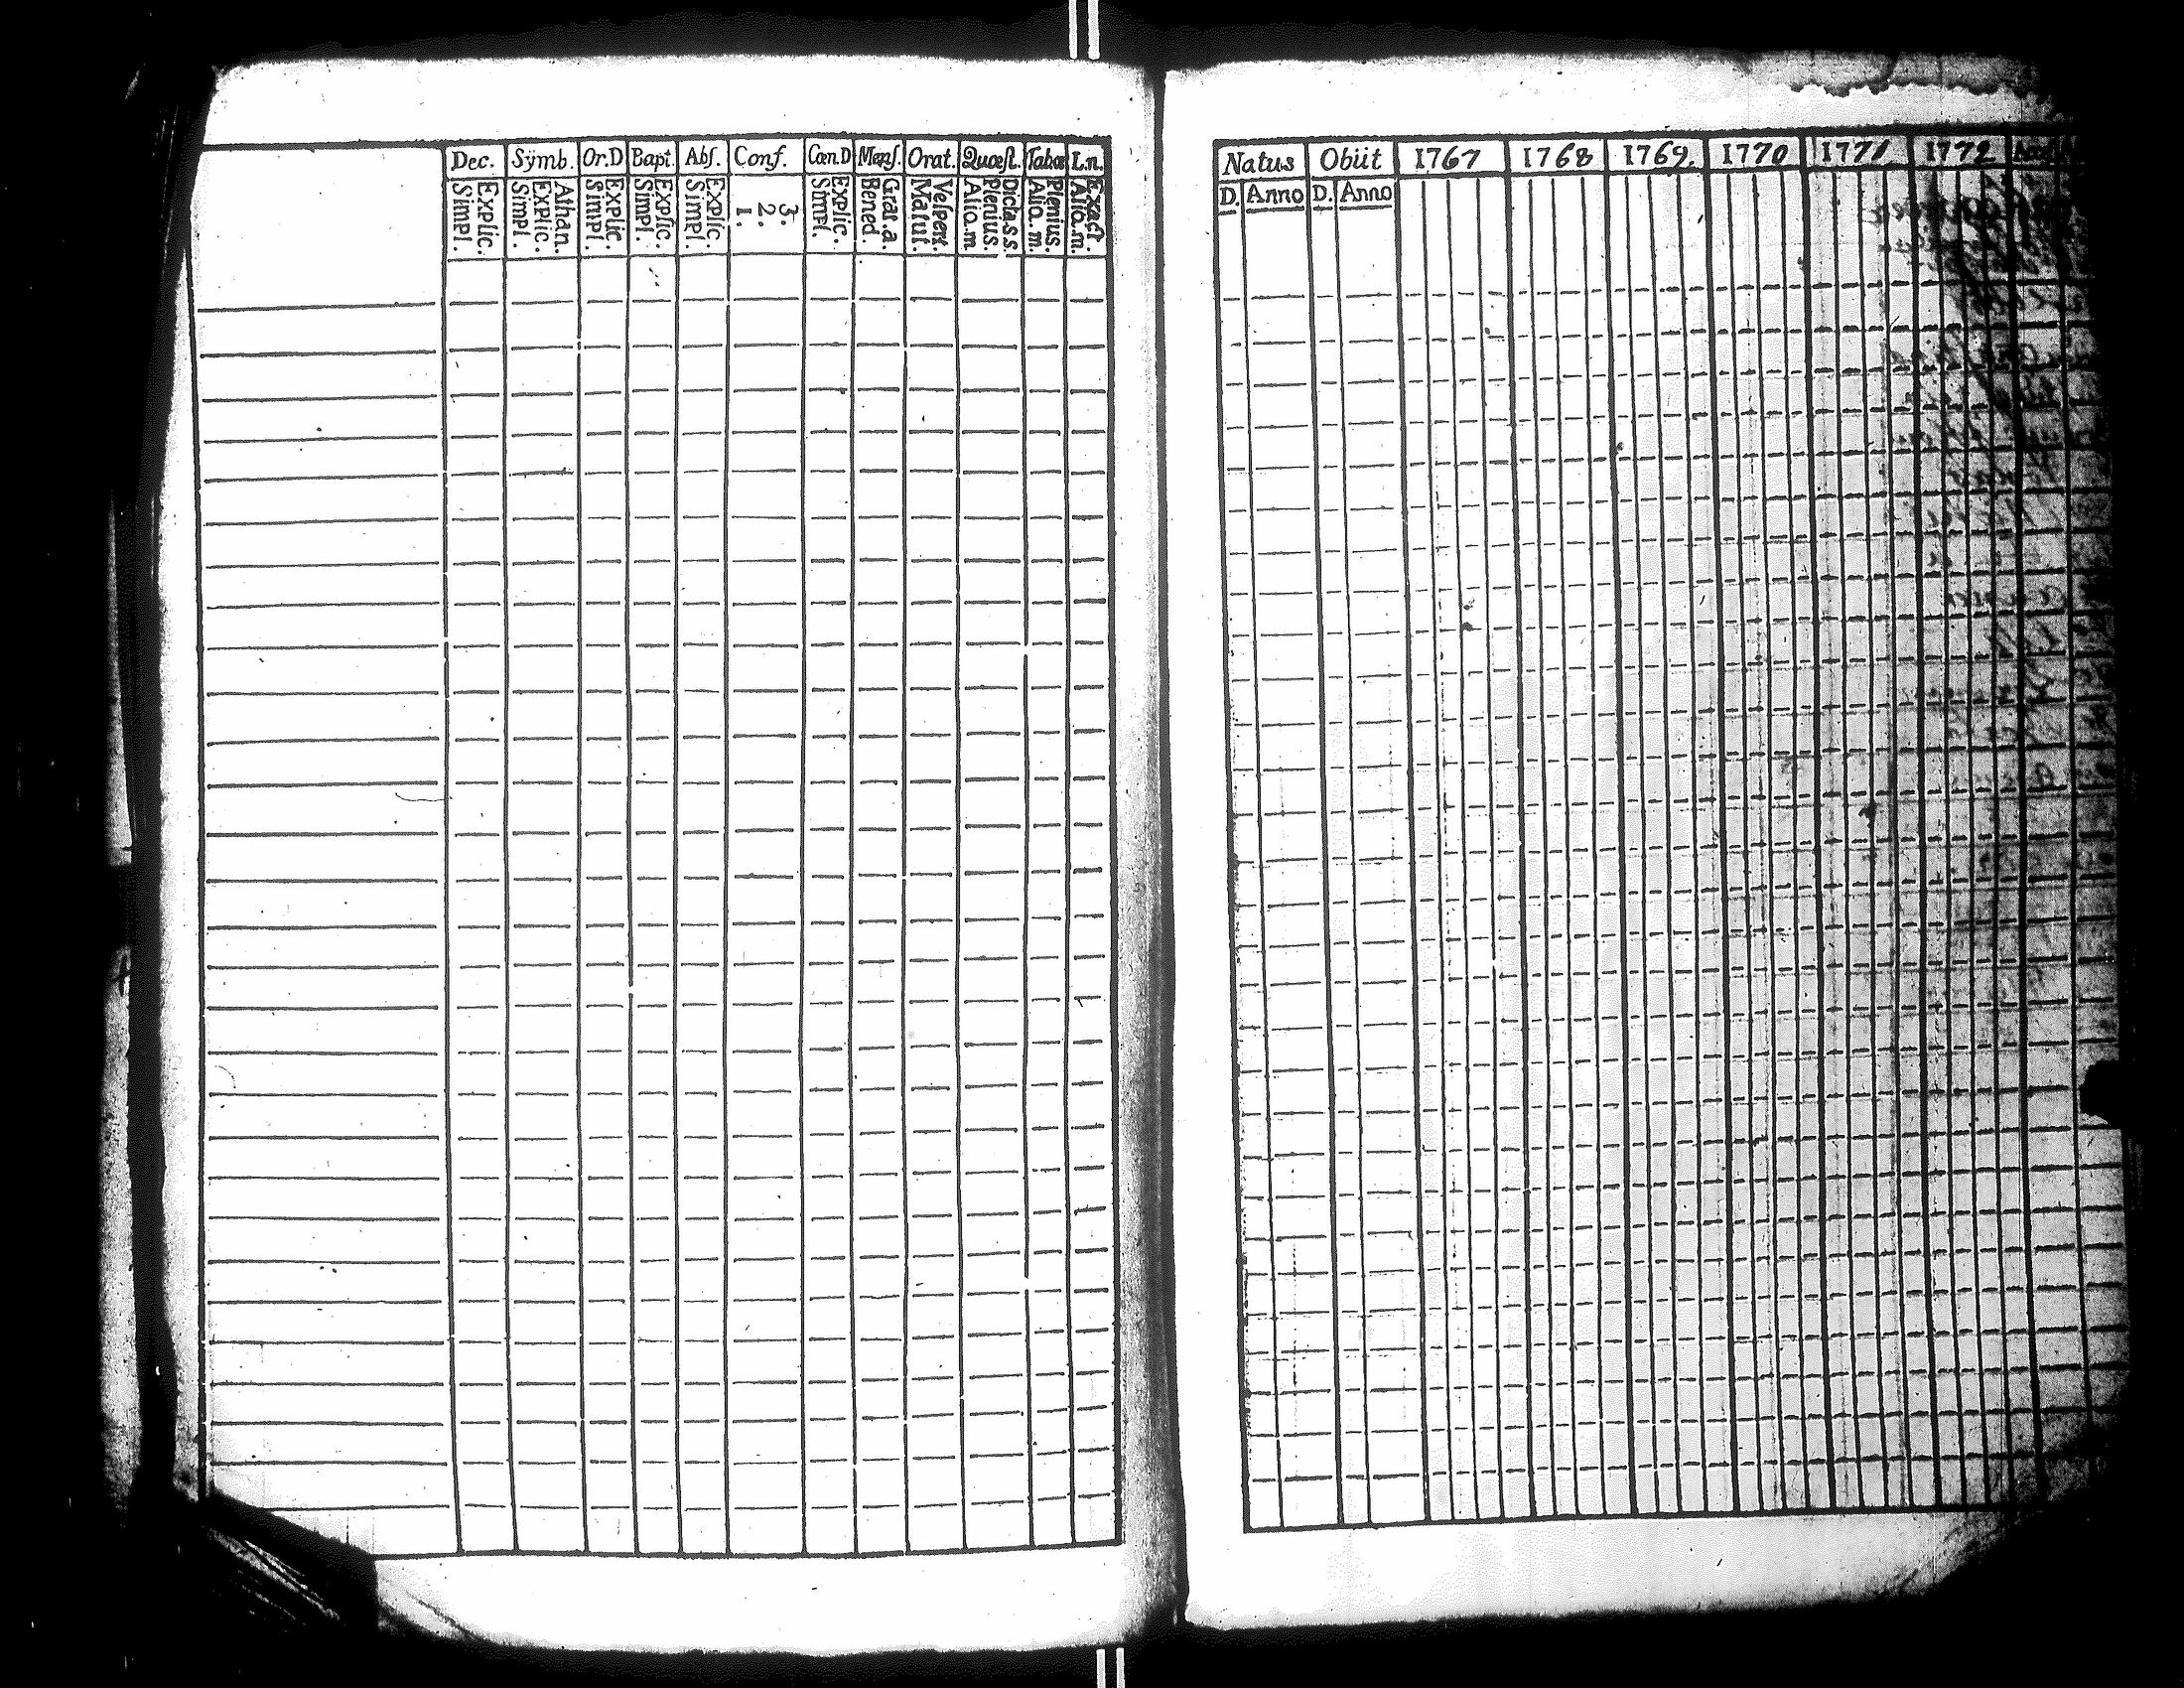 Dec. Sÿmb. Or.D Bapt. Abſ. Conf. Cœn.D Menſ. Orat. Quæſt. Tabæ L.n.
Explic. Simpl.
Athan. Explic. Simpl.
Explic. Simpl.
Explic. Simpl.
Explic. Simpl.
3. 2. 1.
Explic. Simpl.
Grat.a. Bened.
Veſpert. Matut.
Dicta.s.s. Plenius. Aliq.m.
Plenius. Aliq.m.
Exact. Aliq.m.
Natus Obiit 1767 1768 1769. 1770 1771 1772
D. Anno D. Anno